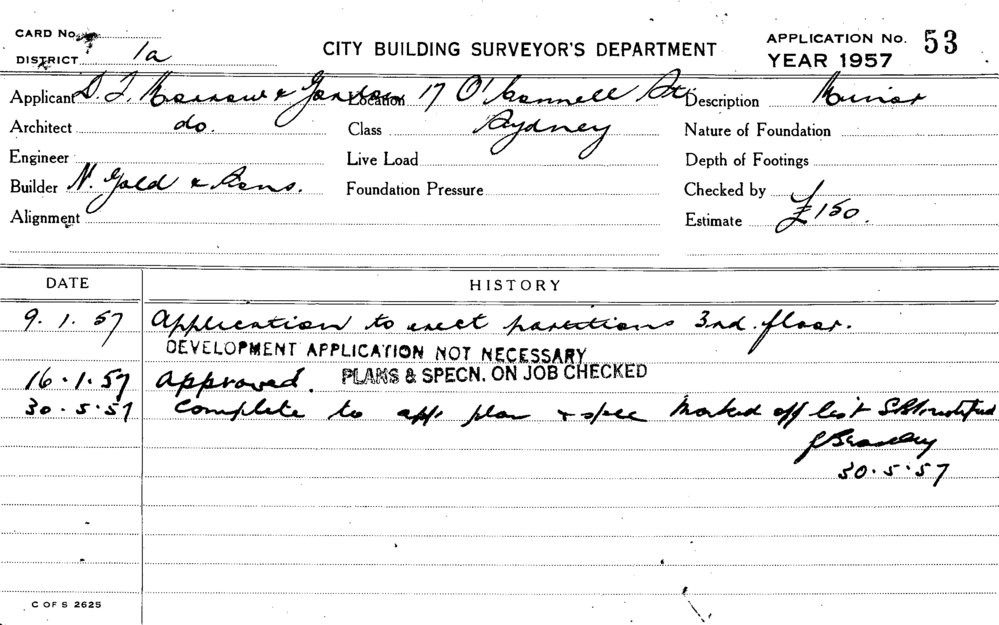 CARD No.
DISTRICT 1a
CITY BUILDING SURVEYOR'S DEPARTMENT
APPLICATION No. 53
YEAR 1957
Applicant D. T. Morrow & Gordon Location 17 O'Connell St. Description Minor
Architect do. Class Sydney Nature of Foundation
Engineer Live Load Depth of Footings
Builder N. Gold & Sons. Foundation Pressure Checked by
Alignment Estimate £150.
DATE HISTORY
9.1.57 Application to erect partitions 3rd. floor.
DEVELOPMENT APPLICATION NOT NECESSARY
16.1.57 Approved. PLANS & SPECN. ON JOB CHECKED
30.5.57 Complete to app. plan & spec Marked off list
30.5.57
C OF S 2625